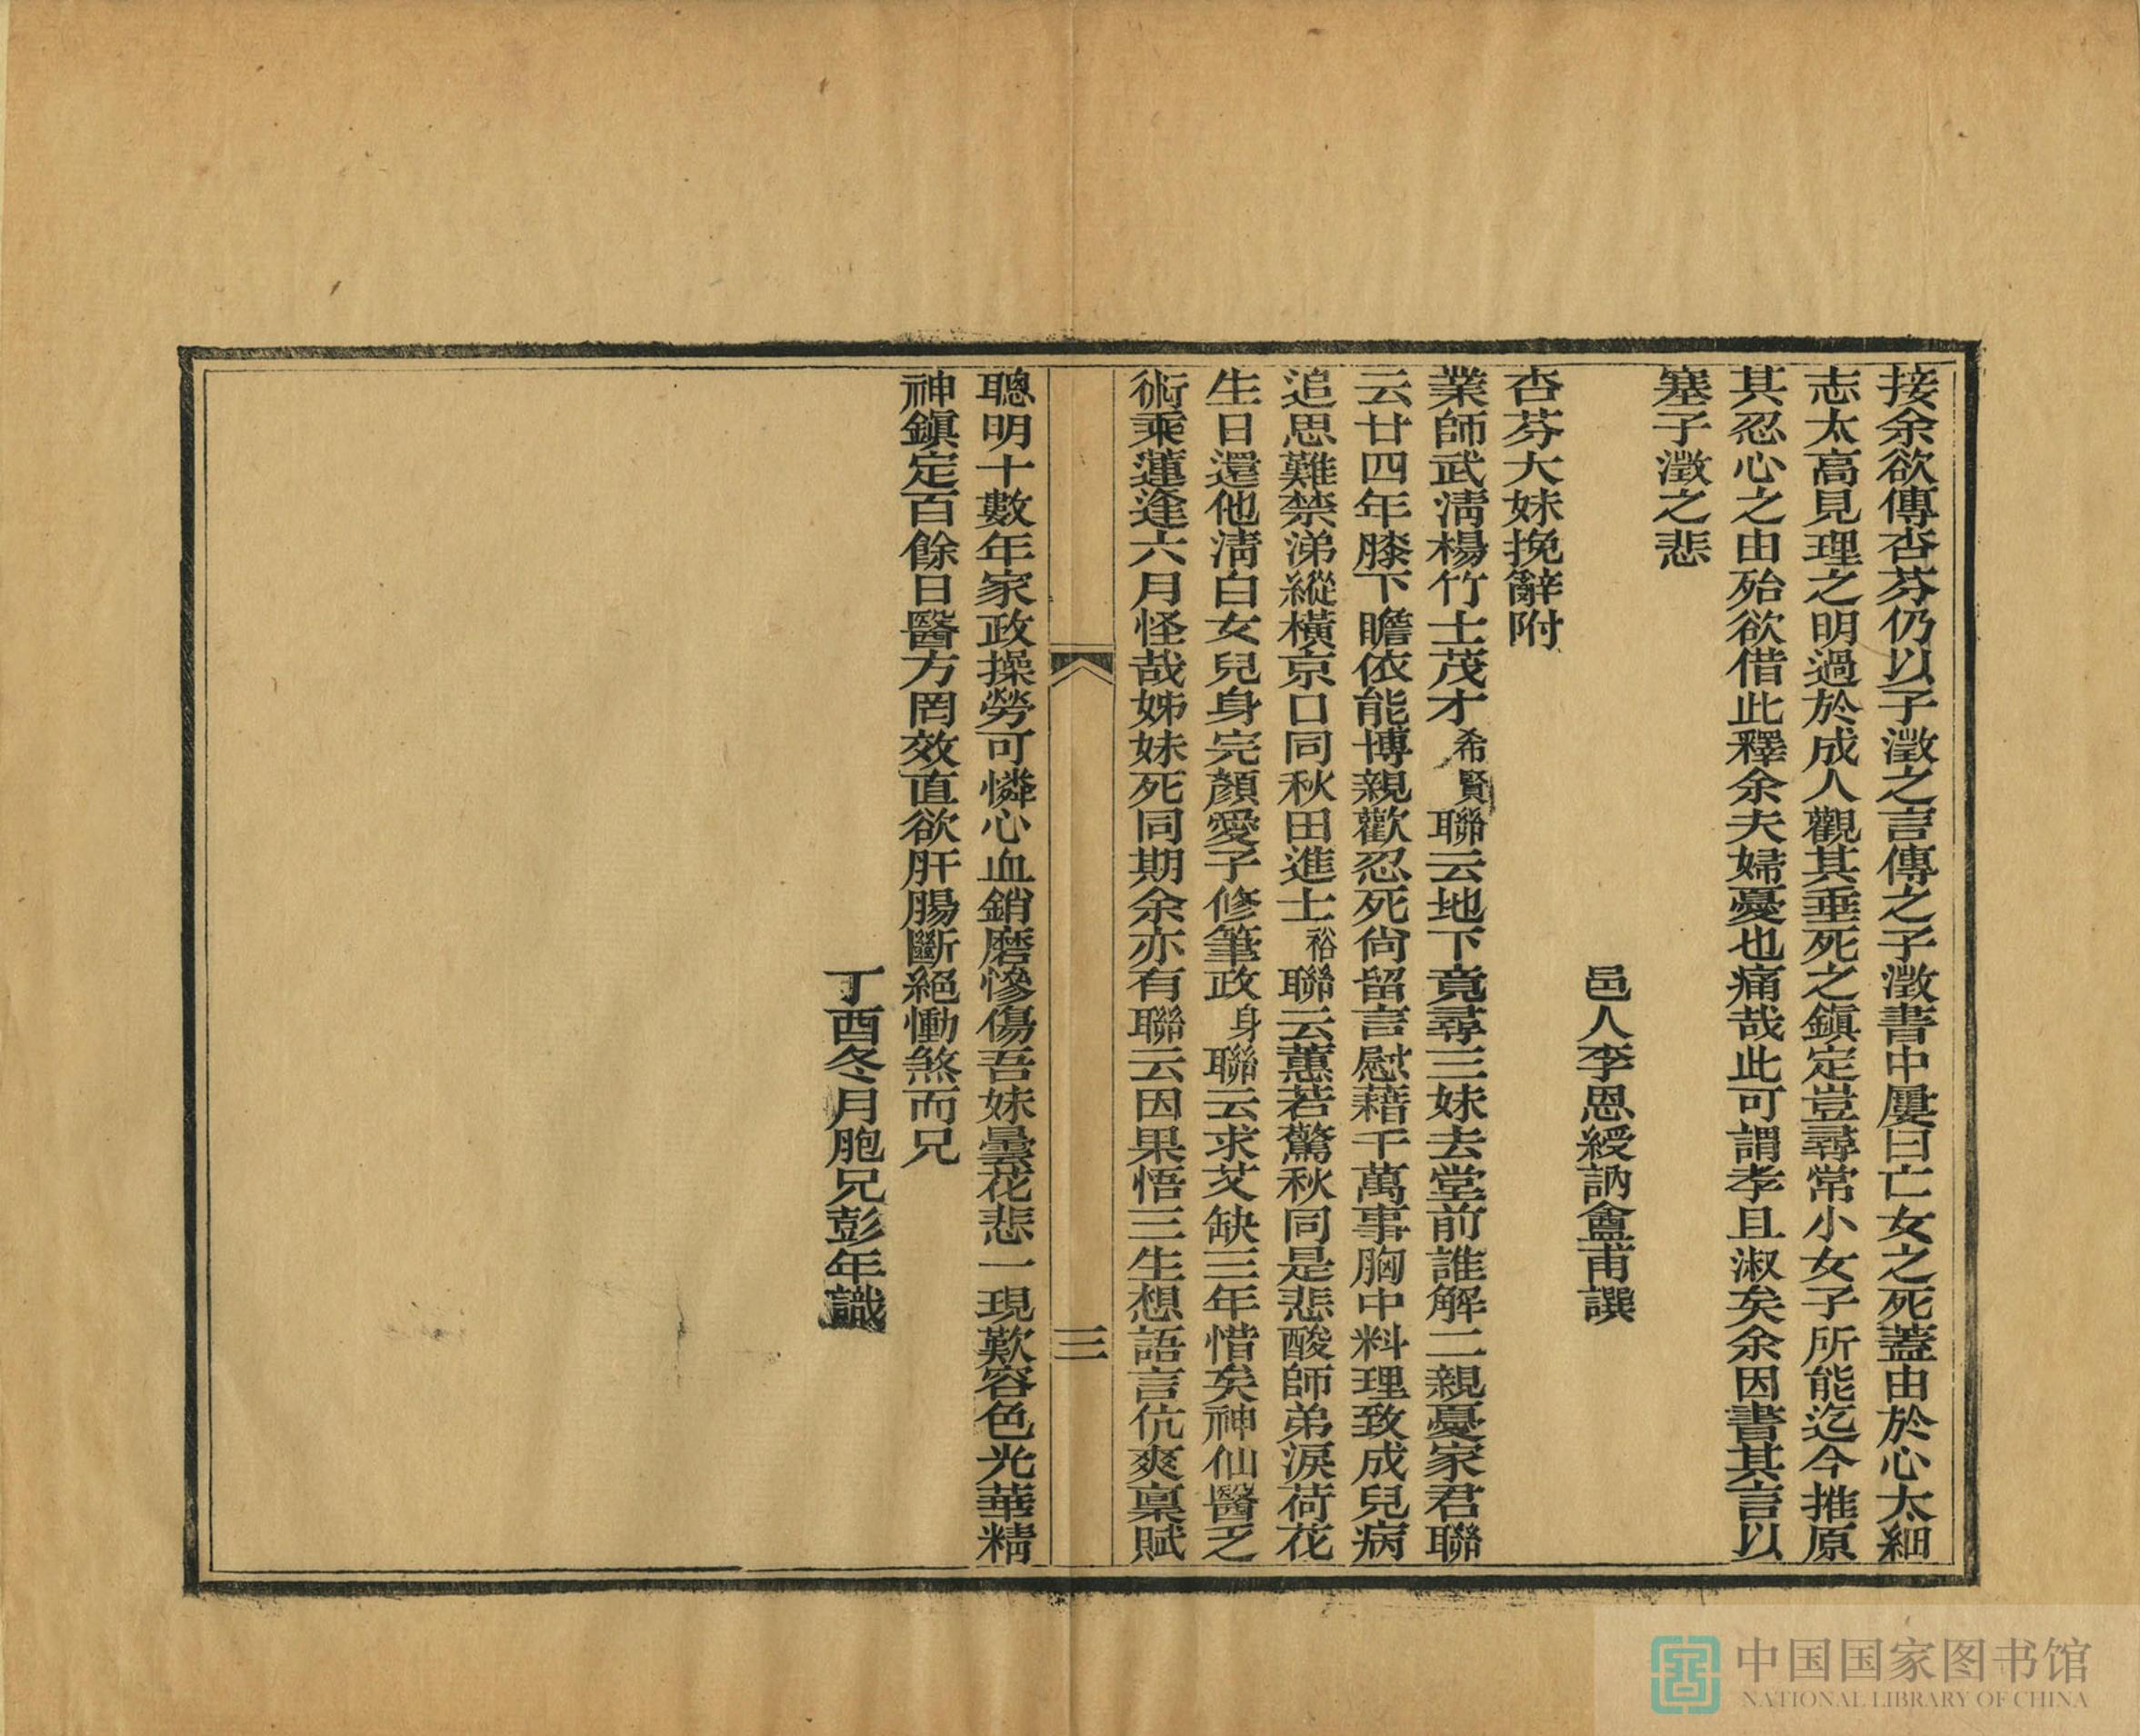 接余欲傳杏芬仍以子澂之言傳之子澂書中屢曰亡女之死蓋由於心太細
志太高見理之明過於成人觀其垂死之鎮定豈尋常小女子所能迄今推原
其忍心之由殆欲借此釋余夫婦憂也痛哉此可謂孝且淑矣余因書其言以
塞子澂之悲
邑人李恩綬訥盦甫譔
杏芬大妹挽辭附
業師武淸楊竹士茂才希賢聯云地下竟尋三妹去堂前誰解二親憂家君聯
云廿四年膝下瞻依能博親歡忍死尙留言慰藉千萬事胸中料理致成兒病
追思難禁涕縱橫京口同秋田進士裕聯云蕙若驚秋同是悲酸師弟淚荷花
生日還他淸白女兒身完顏愛子修筆政身聯云求艾缺三年惜矣神仙醫乏
術乘蓮逢六月怪哉姊妹死同期余亦有聯云因果悟三生想語言伉爽稟賦
三
聰明十數年家政操勞可憐心血銷磨慘傷吾妹曇花悲一現歎容色光華精
神鎭定百餘日醫方罔效直欲肝腸斷絕慟煞而兄
丁酉冬月胞兄彭年識
中国国家图书馆
NATIONAL LIBRARY OF CHINA